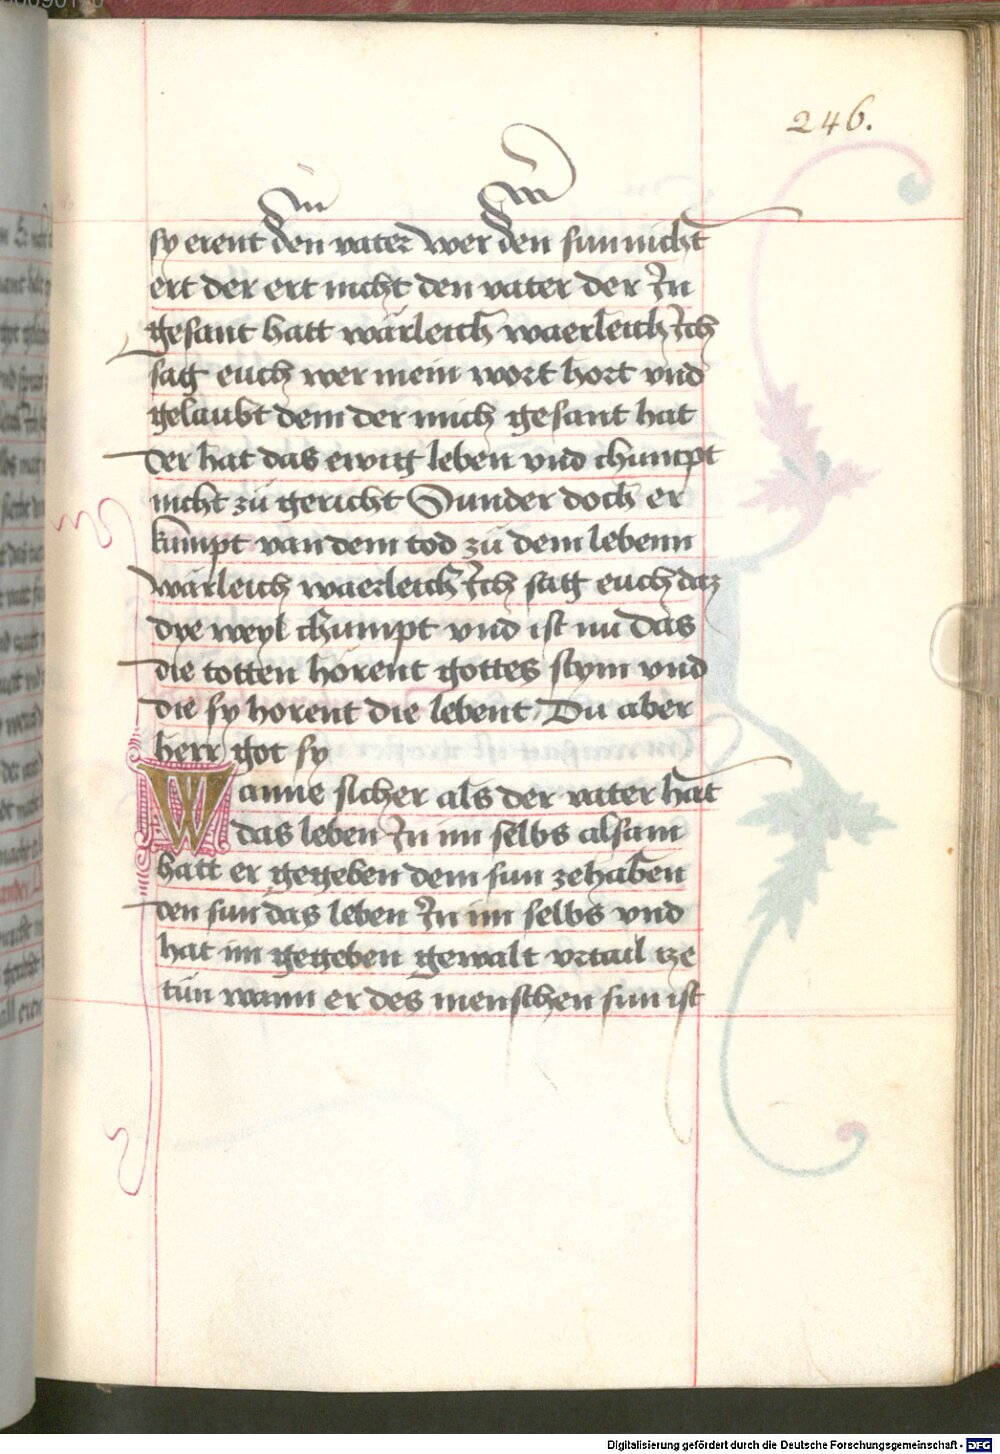 246.
sy erent den vater wer den sun nicht
ert der ert nicht den vater der In
gesant hatt wärleich waerleich Ich
sag euch wer mein wort hort vnd
gelaubt dem der mich gesant hat
der hat das ewig leben vnd chumpt
nicht zü gericht Sunder doch er
kumpt van dem tod zü dem lebenn
wärleich waerleich Ich sag euch daz
dye weyl chumpt vnd ist nu das
die totten hörent gottes stym vnd
die sy horent die lebent Du aber
herr got sy
Wanne sicher als der vater hat
das leben In im selbs alsam
hatt er gegeben dem sun zehaben
den sun das leben In im selbs vnd
hat im gegeben gewalt vrtail cze
tün wann er des menschen sun ist
Digitalisierung gefördert durch die Deutsche Forschungsgemeinschaft - DFG